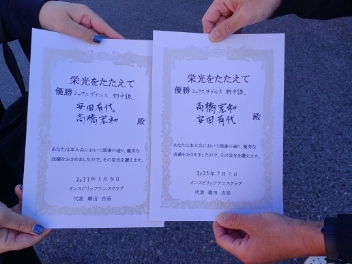 栄光をたたえて
優勝 ミックスダブルス 初中級
安田有代
高橋宏和
殿
あなたは本大会において頭書の通り、優秀な
成績をおさめましたので、その栄光を讃えます。
2023年 7月 9日
インスピリッツテニスクラブ
代表
栄光をたたえて
優勝 ミックスダブルス 初中級
高橋宏和
安田有代
殿
あなたは本大会において頭書の通り、優秀な
成績をおさめましたので、その栄光を讃えます。
インスピリッツテニスクラブ
代表